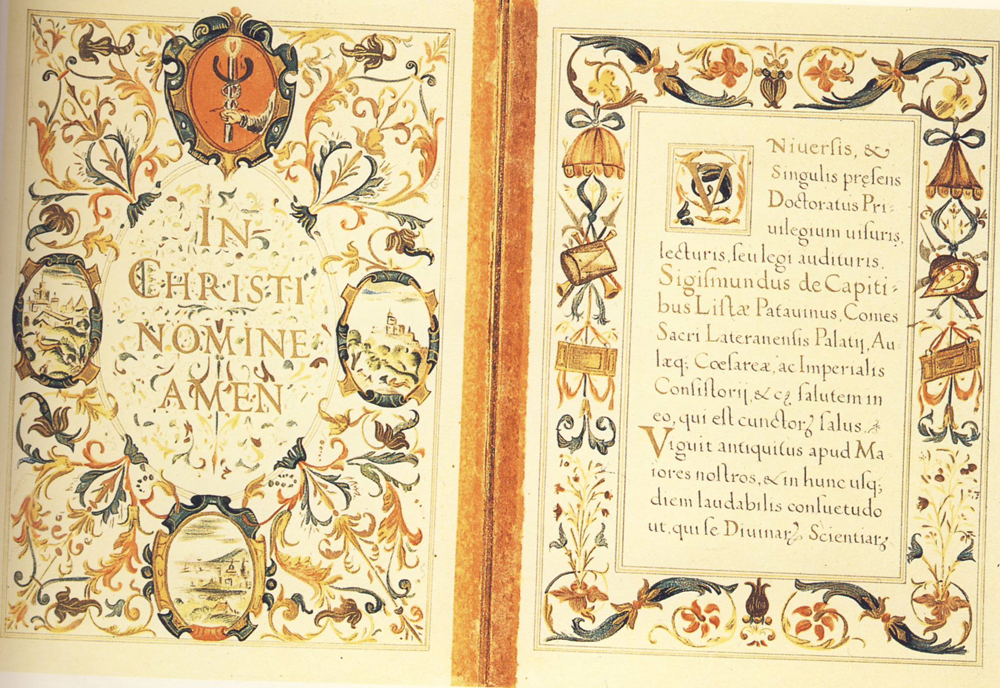 IN
CHRISTI
NOMINE
AMEN
VNiuersis, &
Singulis pręsens
Doctoratus Pri-
uilegium uisuris,
lecturis, seu legi audituris,
Sigismundus de Capiti-
bus Listæ Patauinus, Comes
Sacri Lateranensis Palatij, Au-
læq; Cœsareæ, ac Imperialis
Consistorij, & cę salutem in
eo, qui est cunctorꝝ salus.
Viguit antiquitus apud Ma-
iores nostros, & in hunc usq;
diem laudabilis consuetudo
ut, qui se Diuinarꝝ Scientiarꝝ